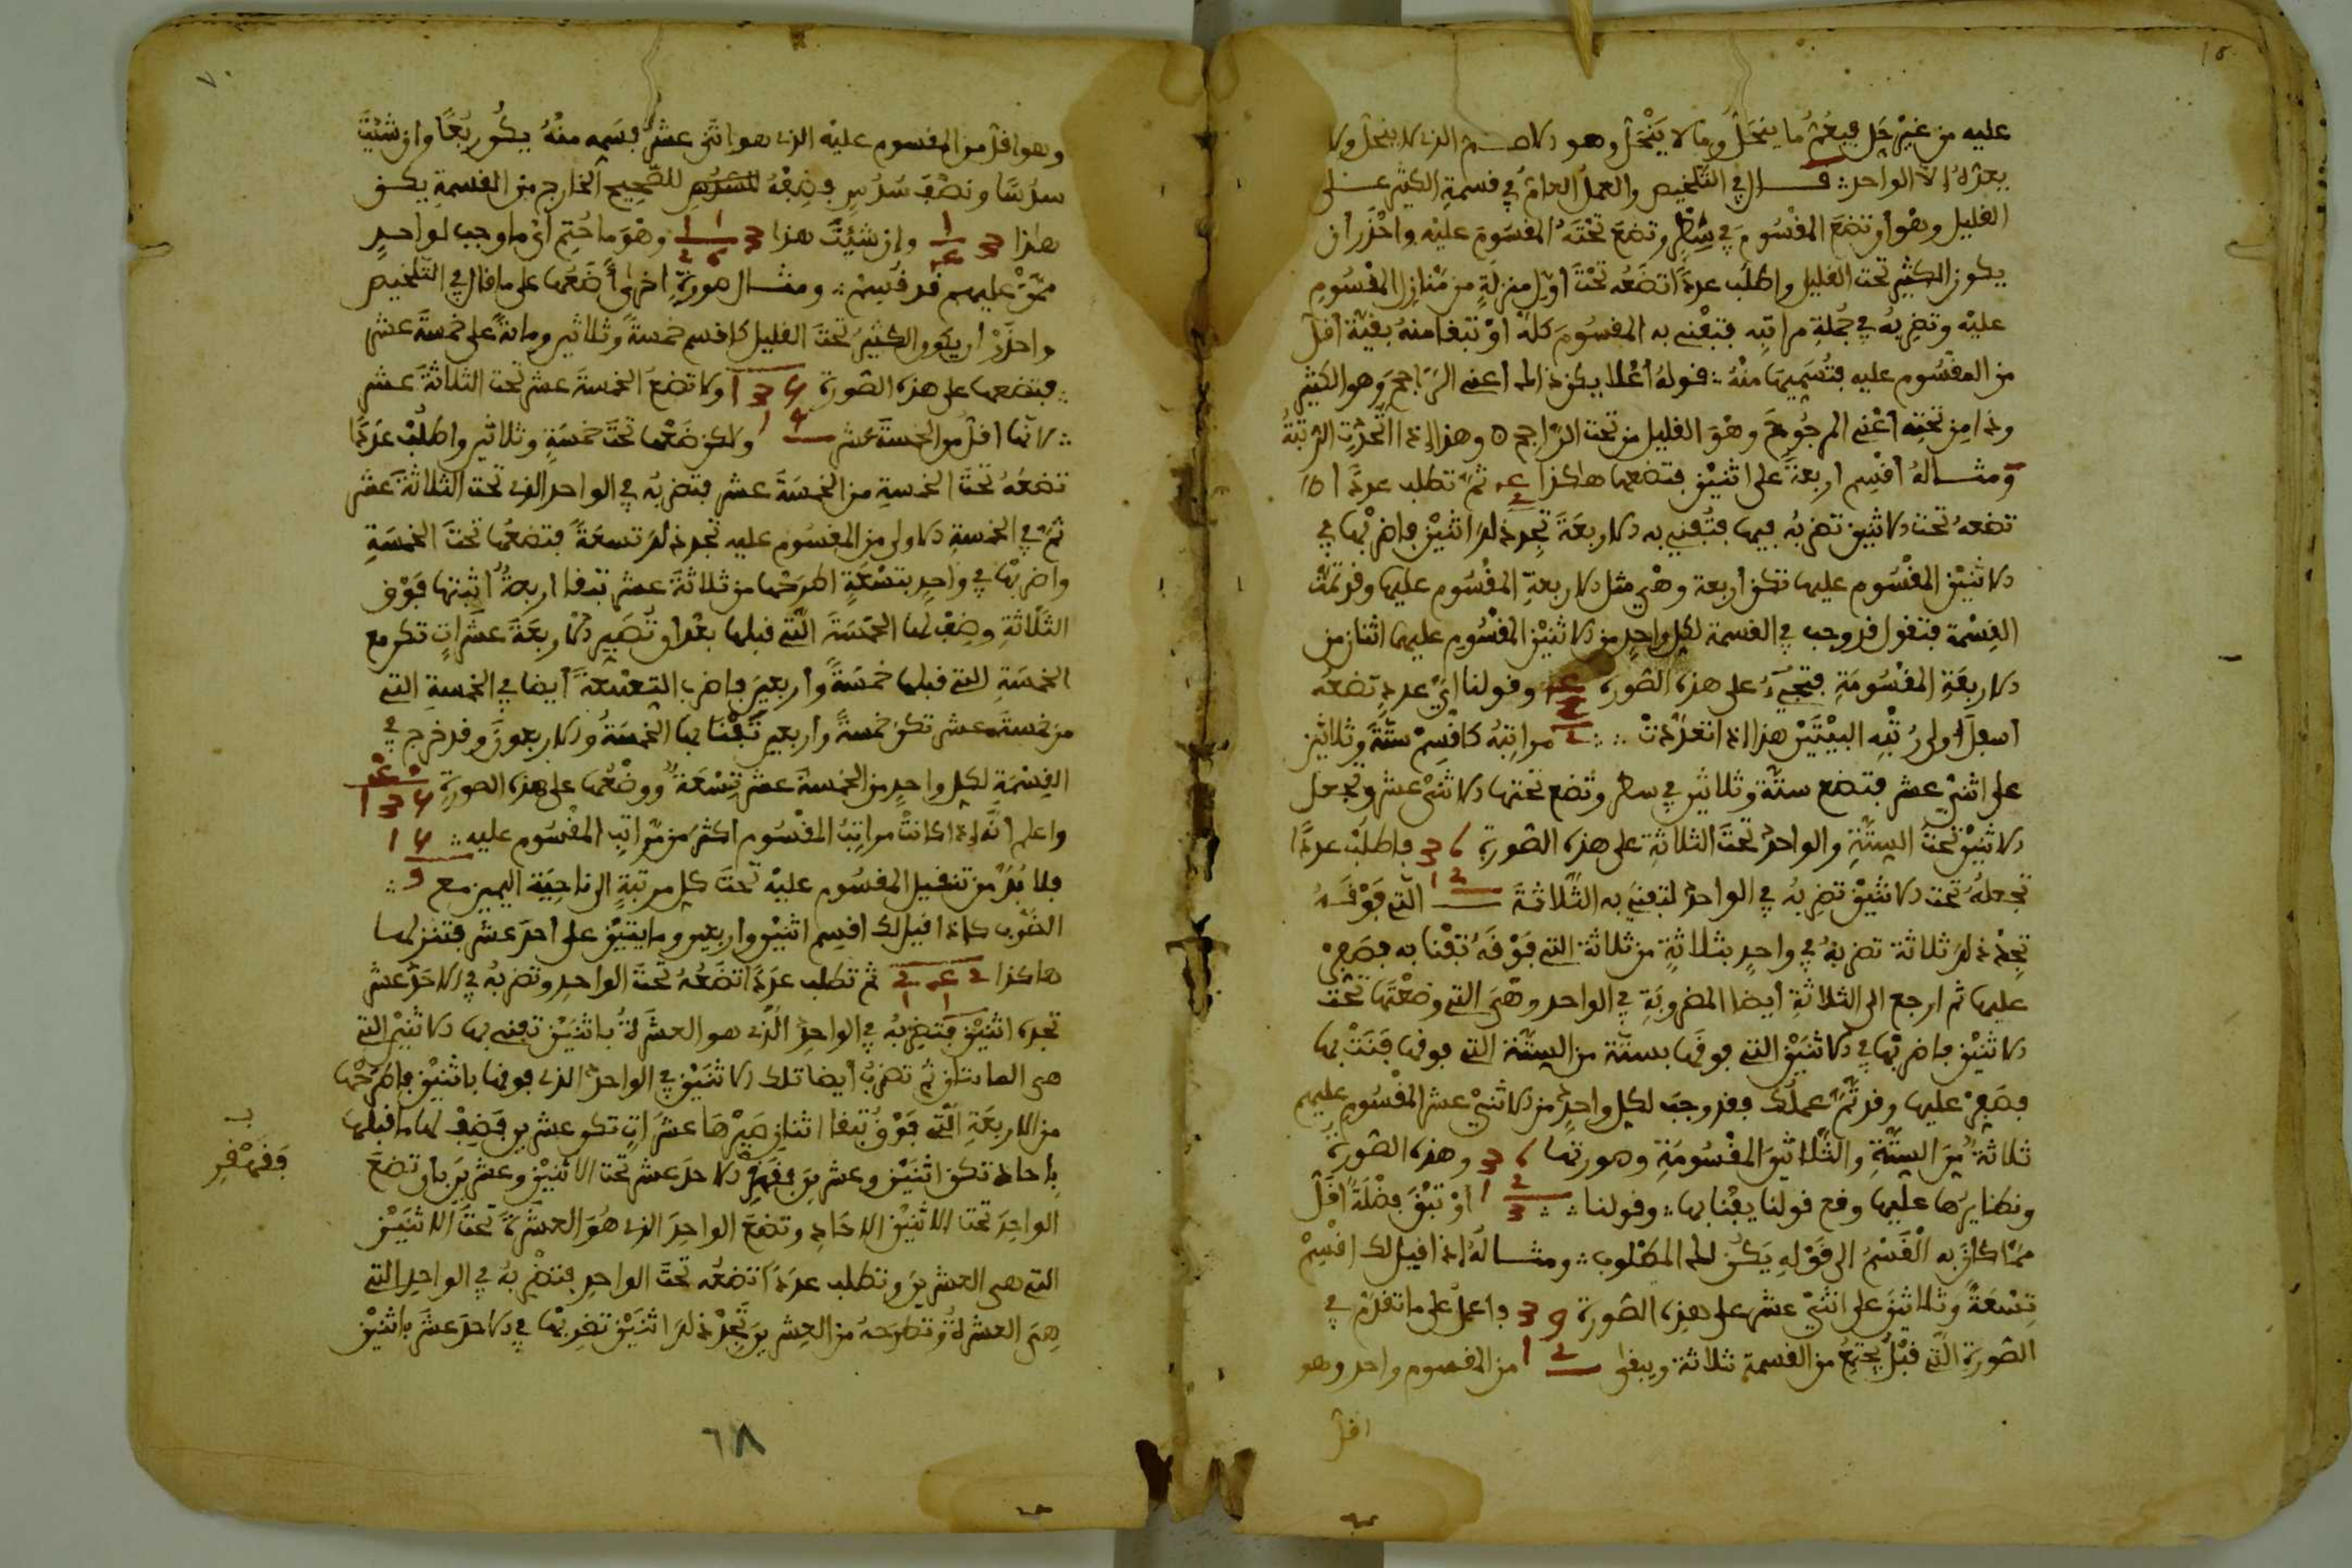 عليه من غير حل فيعم ما ينحل وما لا ينحل وهو الاصم الذي لا ينحل ولا
يعده الا الواحد قال في التلخيص والعمل العام في قسمة الكثير على
القليل وهو أن تضع المقسوم في سطر وتضع تحته المقسوم عليه واحذر أن
يكون الكثير تحت القليل واطلب عددا تضعه تحت أول منزلة من منازل المقسوم
عليه وتضربه في جملة مراتبه فتفني به المقسوم كله أو تبقا منه بقية أقل
من المقسوم عليه فتسميها منه قوله أعلا يكن ذا لها أعني الراجح وهو الكثير
وذا من تحته أعني المرجوح وهو القليل من تحت الراجح وهذا إذا اتحدت الرتبة
ومثاله اقسم اربعة على اثنين فتضعها هاكذا ثم تطلب عددا
تضعه تحت الاثنين تضربه فيها فتفني به الاربعة تجد ذلك اثنين فاضربها في
الاثنين المقسوم عليها تكن أربعة وهي مثل الاربعة المقسوم عليها وقد تمت
القسمة فتقول قد وجب في القسمة لكل واحد من الاثنين المقسوم عليهما اثنان من
الاربعة المقسومة فتجيء على هذه الصورة وقولنا أي عدد تضعه
اسفل أولى رتبه البيتين هذا إذا تعددت مراتبه كاقسم ستة وثلاثين
على اثني عشر فتضع ستة وثلاثين في سطر وتضع تحتها الاثني عشر وتجعل
الاثنين تحت الستة والواحد تحت الثلاثة على هذه الصورة 36 فاطلب عددا
تجعله تحت الاثنين تضربه في الواحد لتفني به الثلاثة 12 التي فوقه
تجد ذلك ثلاثة تضربه في واحد بثلاثة من ثلاثة التي فوقه تفنا به فصفر
عليها ثم ارجع الى الثلاثة أيضا المضروبة في الواحد وهي التي وضعتها تحت
الاثنين فاضربها في الاثنين التي فوقها بستة من الستة التي فوقها فنت بها
فصفر عليها وقد تم عملك فقد وجب لكل واحد من الاثني عشر المقسوم عليهم
ثلاثة من الستة والثلاثين المقسومة وصورتها 36 وهذه الصورة
ونظايرها عليها وقع قولنا يفنا بها وقولنا 12 3 أو تبق فضلة أقل
مما كان به القسم الى قوله يكن لها المطلوب ومثاله إذا قيل لك اقسم
تسعة وثلاثين على اثني عشر على هذه الصورة 39 فاعمل على ما تقدم في
الصورة التي قبل يجتمع من القسمة ثلاثة ويبقى 12 من المقسوم واحد وهو
اقل
وهو اقل من المقسوم عليه الذي هو اثنى عشر فسمه منه يكن ربعا وان شئت
سدسا ونصف سدس فضفه للصحيح الخارج من القسمة يكن
هاذا وإن شئت هذا وهو ما حتم أي ما وجب لواحد
ممن عليهم قد قسم ومثال صورة أخرى أضعها على ما قال في التلخيص
واحذر أن يكون الكثير تحت القليل كاقسم خمسة وثلاثين ومائة على خمسة عشر
فتضعها على هذه الصورة ولا تضع الخمسة عشر تحت الثلاثة عشر
لانها أقل من الخمسة عشر ولكن ضعها تحت خمسة وثلاثين واطلب عددا
تضعه تحت الخمسة من الخمسة عشر فتضربه في الواحد الذي تحت الثلاثة عشر
ثم في الخمسة الاولى من المقسوم عليه تجد ذلك تسعة فتضعها تحت الخمسة
واضربها في واحد بتسعة اطرحها من ثلاثة عشر تبقا اربعة أثبتها فوق
الثلاثة وضف لها الخمسة التي قبلها بعد أن تصير الاربعة عشرات تكن مع
الخمسة التي قبلها خمسة وأربعين فاضرب التسعة أيضا في الخمسة التي
من خمسة عشر تكن خمسة وأربعين تفنا بها الخمسة والاربعون وقد خرج في
القسمة لكل واحد من الخمسة عشر تسعة ووضعها على هذه الصورة
واعلم أنه إذا كانت مراتب المقسوم اكثر من مراتب المقسوم عليه
فلا بد من تنقيل المقسوم عليه تحت كل مرتبة الى ناحية اليمين مع
الضرب كاذا قيل لك اقسم اثنين وأربعين ومايتين على أحد عشر فتنزلها
هاكذا ثم تطلب عددا تضعه تحت الواحد وتضربه في الاحد عشر
تجده اثنين فتضربه في الواحد الذي هو العشرة باثنين تفني بها الاثنين التي
هي المايتان ثم تضرب أيضا تلك الاثنين في الواحد الذي فوقها باثنين فاطرحها
من الاربعة التي فوق تبقا اثنان صيرها عشرات تكن عشرين فضف لها ما قبلها
بإحاد تكن اثنين وعشرين فقهقر الاحد عشر تحت الاثنين وعشرين بأن تضع
الواحد تحت الاثنين الاحاد وتضع الواحد الذي هو العشرة تحت الاثنين
التي هي العشرين وتطلب عددا تضعه تحت الواحد فتضربه في الواحد التي
هي العشرة وتطرحه من العشرين تجد ذلك اثنين تضربها في الاحد عشر باثنين
فقهقر
٦٨